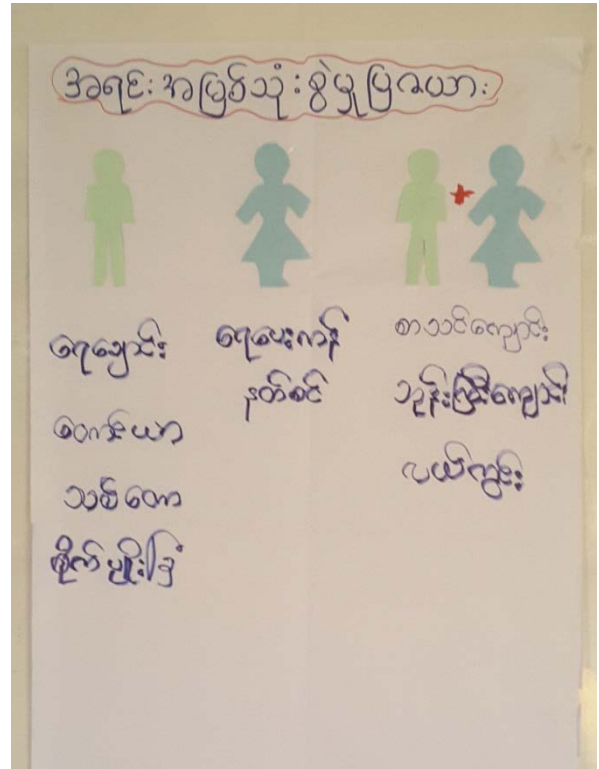 အရင်းအမြစ်သုံးစွဲမှုပြဇယား
ရေချောင်း
တောင်ယာ
သစ်တော
စိုက်ပျိုးခြံ
ရေပေးကန်
နတ်စင်
စာသင်ကျောင်း
ဘုန်းကြီးကျောင်း
လယ်ကွင်း